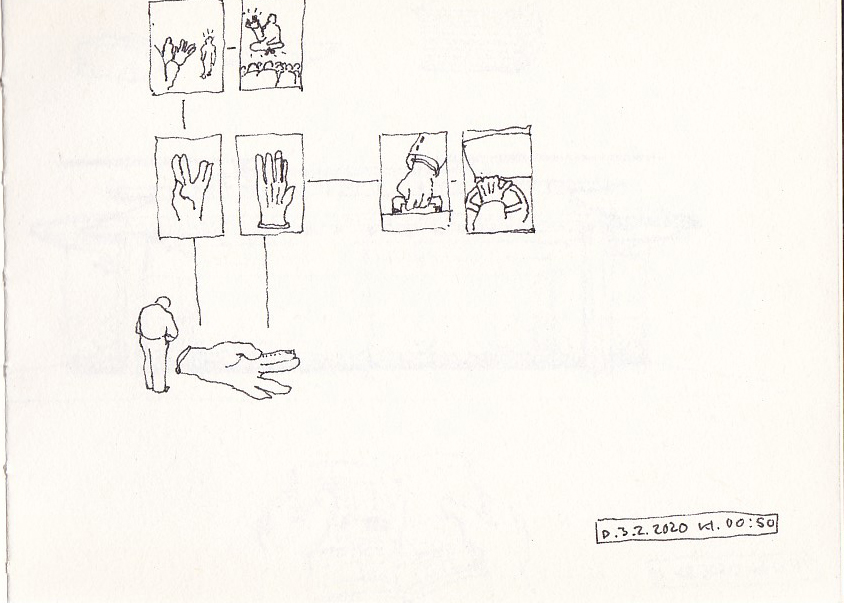 D.3.2.2020 kl. 00:50